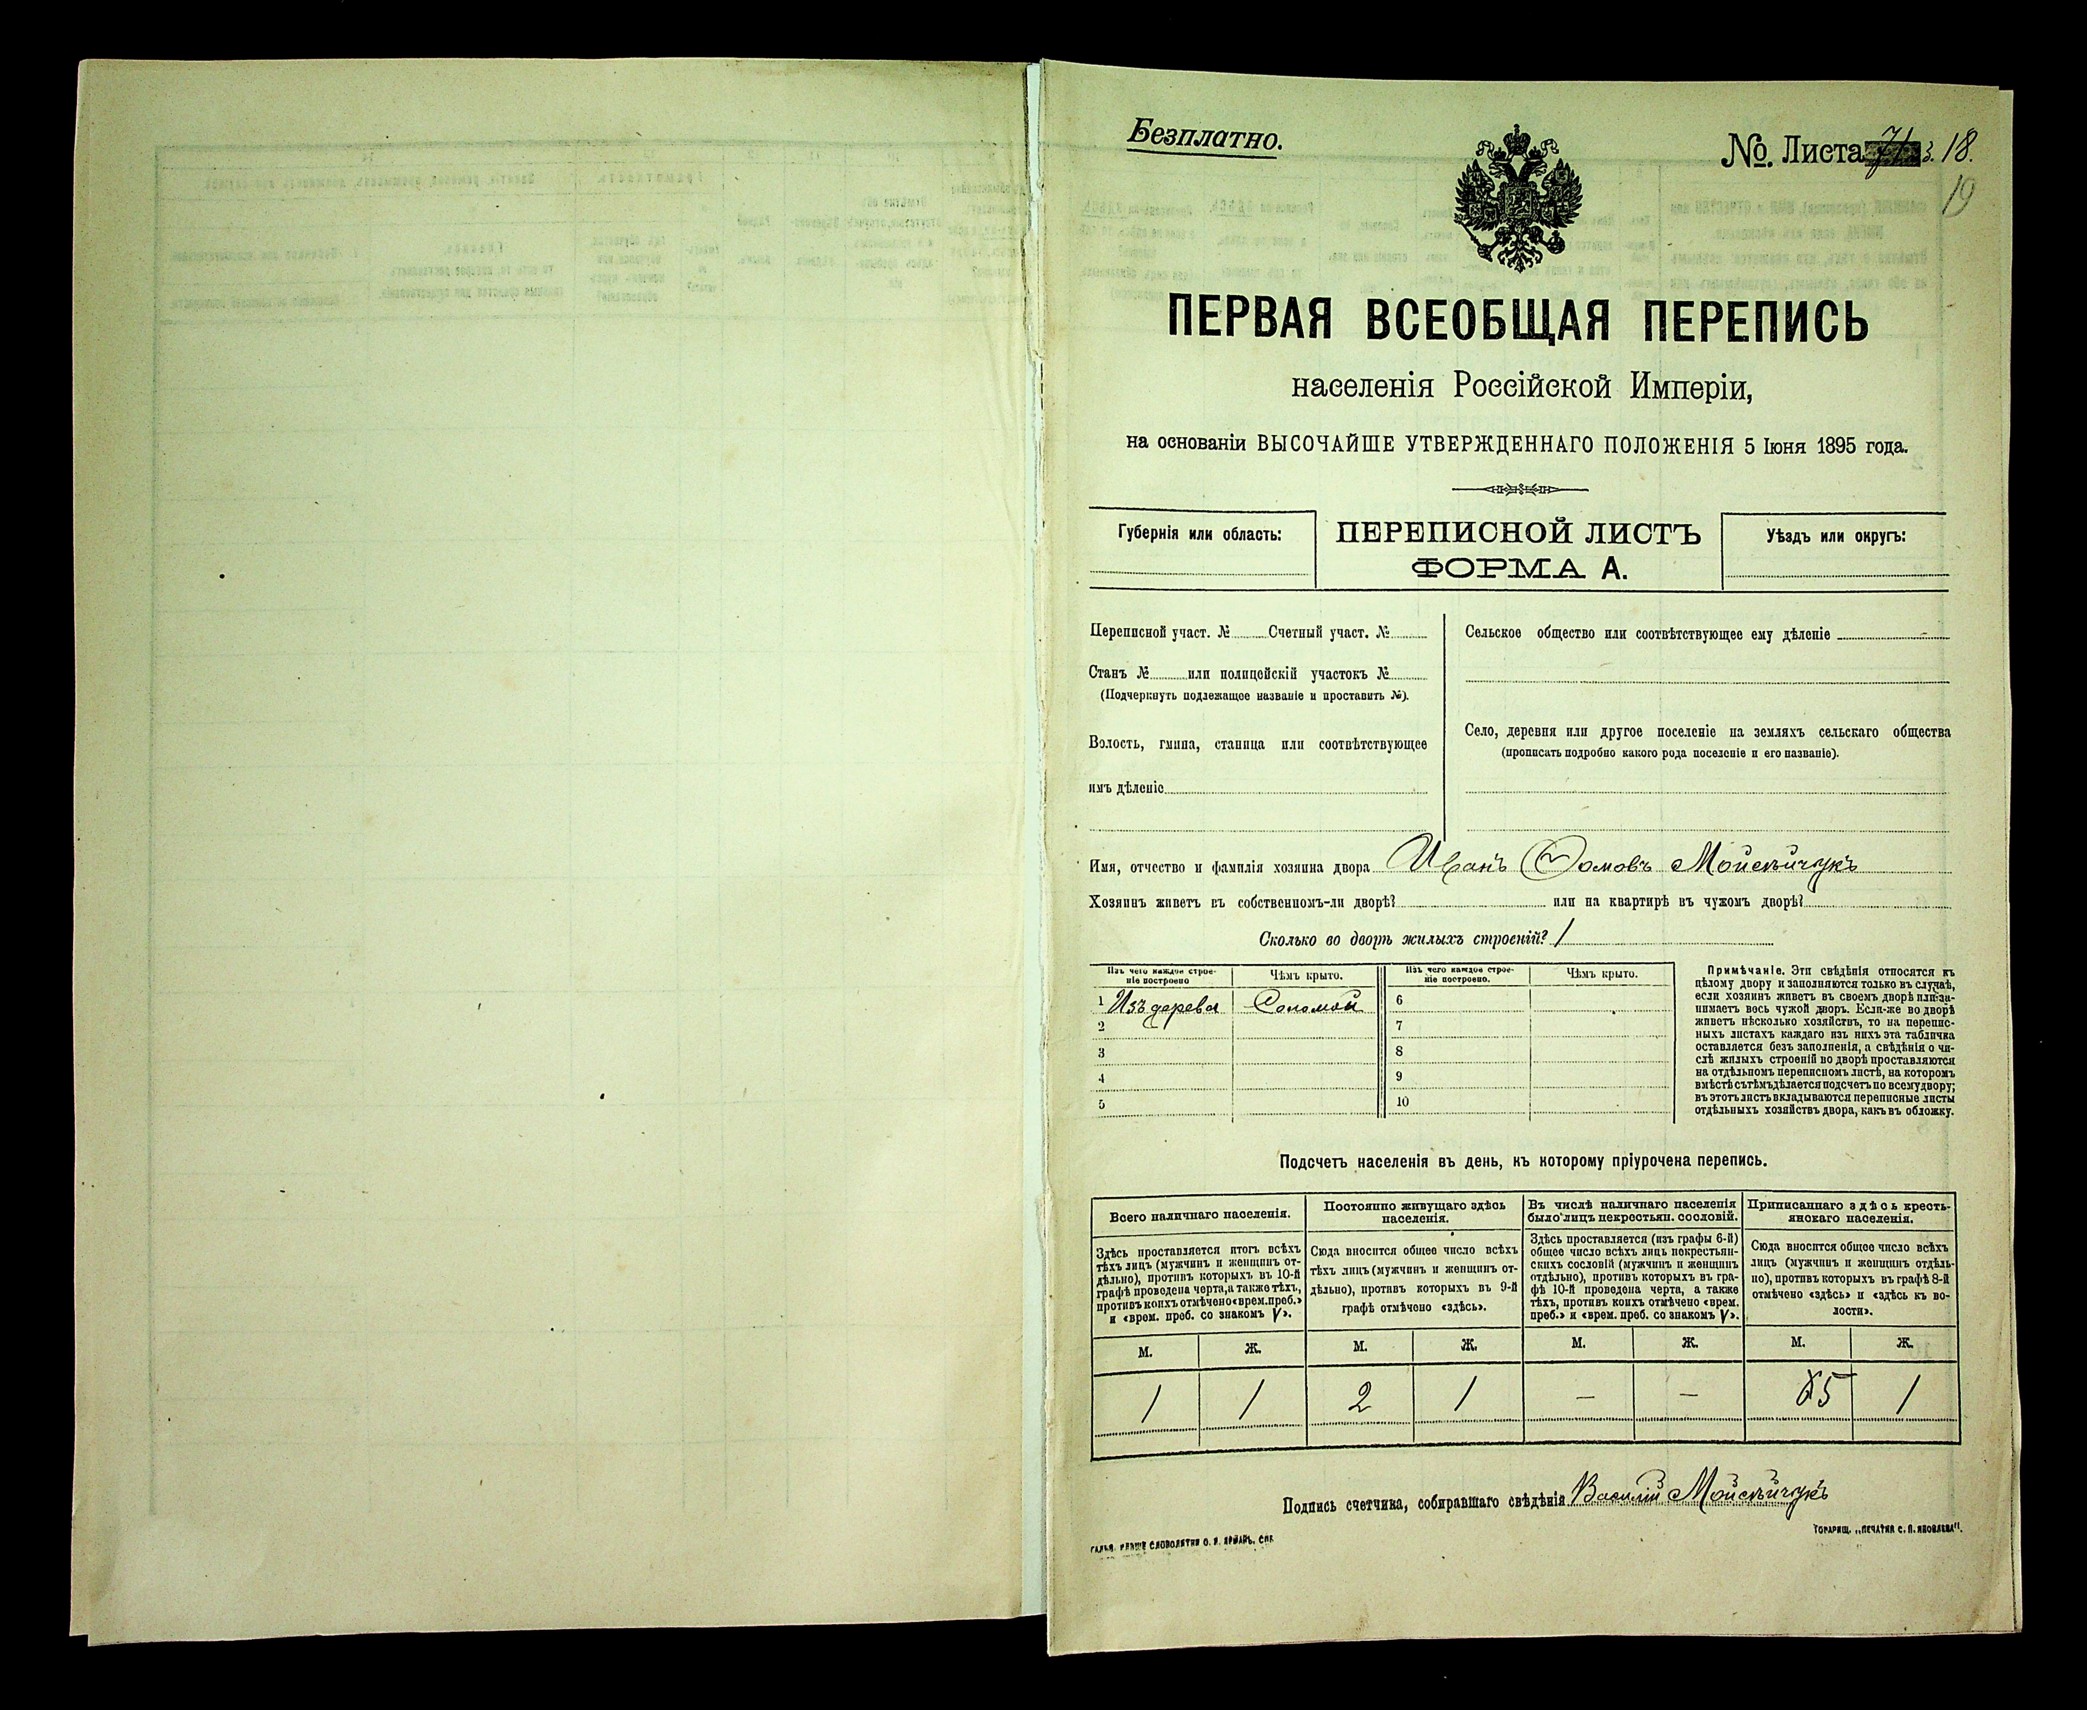 Безплатно.
№. Листа 71 3. 18.
19
ПЕРВАЯ ВСЕОБЩАЯ ПЕРЕПИСЬ
населенія Россійской Имперіи,
на основаніи ВЫСОЧАЙШЕ УТВЕРЖДЕННАГО ПОЛОЖЕНІЯ 5 Іюня 1895 года.
Губернія или область:
ПЕРЕПИСНОЙ ЛИСТЪ
ФОРМА А.
Уѣздъ или округъ:
Переписной участ. № Счетный участ. №
Станъ № или полицейскій участокъ №
(Подчеркнуть подлежащее названіе и проставить №).
Волость, гмина, станица или соотвѣтствующее
имъ дѣленіе
Сельское общество или соотвѣтствующее ему дѣленіе
Село, деревня или другое поселеніе на земляхъ сельскаго общества
(прописать подробно какого рода поселеніе и его названіе).
Имя, отчество и фамилія хозяина двора Иванъ Фомовъ Мойсѣйчукъ
Хозяинъ живетъ въ собственномъ-ли дворѣ? или на квартирѣ въ чужомъ дворѣ?
Сколько во дворѣ жилыхъ строеній? 1
Изъ чего каждое строе-
ніе построено
Чѣмъ крыто.
Изъ чего каждое строе-
ніе построено.
Чѣмъ крыто.
1 Изъ дерева Соломой 6
2 7
3 8
4 9
5 10
Примѣчаніе. Эти свѣдѣнія относятся къ
цѣлому двору и заполняются только въ случаѣ,
если хозяинъ живетъ въ своемъ дворѣ или за-
нимаетъ весь чужой дворъ. Если-же во дворѣ
живетъ нѣсколько хозяйствъ, то на перепис-
ныхъ листахъ каждаго изъ нихъ эта табличка
оставляется безъ заполненія, а свѣдѣнія о чи-
слѣ жилыхъ строеній во дворѣ проставляются
на отдѣльномъ переписномъ листѣ, на которомъ
вмѣстѣ съ тѣмъ дѣлается подсчетъ по всему двору;
въ этотъ листъ вкладываются переписные листы
отдѣльныхъ хозяйствъ двора, какъ въ обложку.
Подсчетъ населенія въ день, къ которому пріурочена перепись.
Всего наличнаго населенія.
Здѣсь проставляется итогъ всѣхъ
тѣхъ лицъ (мужчинъ и женщинъ от-
дѣльно), противъ которыхъ въ 10-й
графѣ проведена черта, а также тѣхъ,
противъ коихъ отмѣчено «врем. преб.»
и «врем. преб. со знакомъ V».
Постоянно живущаго здѣсь
населенія.
Сюда вносится общее число всѣхъ
тѣхъ лицъ (мужчинъ и женщинъ от-
дѣльно), противъ которыхъ въ 9-й
графѣ отмѣчено «здѣсь».
Въ числѣ наличнаго населенія
было лицъ некрестьян. сословій.
Здѣсь проставляется (изъ графы 6-й)
общее число всѣхъ лицъ некрестьян-
скихъ сословій (мужчинъ и женщинъ
отдѣльно), противъ которыхъ въ гра-
фѣ 10-й проведена черта, а также
тѣхъ, противъ коихъ отмѣчено «врем.
преб.» и «врем. преб. со знакомъ V».
Приписаннаго здѣсь кресть-
янскаго населенія.
Сюда вносится общее число всѣхъ
лицъ (мужчинъ и женщинъ отдѣль-
но), противъ которыхъ въ графѣ 8-й
отмѣчено «здѣсь» и «здѣсь къ во-
лости».
М. Ж. М. Ж. М. Ж. М. Ж.
1 1 2 1 — — 5 1
Подпись счетчика, собиравшаго свѣдѣнія Василій Мойсѣйчукъ
СЛОВОЛИТНИ О. И. ЛЕМАНЪ. СПБ.
ТОВАРИЩ. „ПЕЧАТНЯ С. П. ЯКОВЛЕВА".